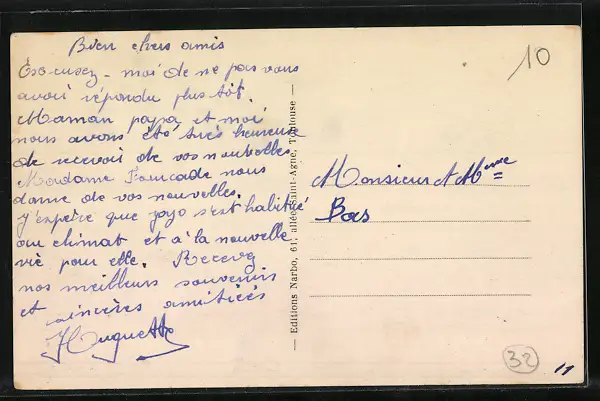 Bien chers amis
Excusez-moi de ne pas vous
avoir répondu plus tôt.
Maman papa et moi
nous avons été très heureux
de recevoir de vos nouvelles.
Madame Fourcade nous
donne de vos nouvelles.
J'espère que jojo s'est habitué
au climat et à la nouvelle
vie pour elle. Recevez
nos meilleurs souvenirs
et sincères amitiées
Huguette
— Editions Narbo, 61, allées Saint-Agne, Toulouse —
10
Monsieur et Mme
Bas
32
11